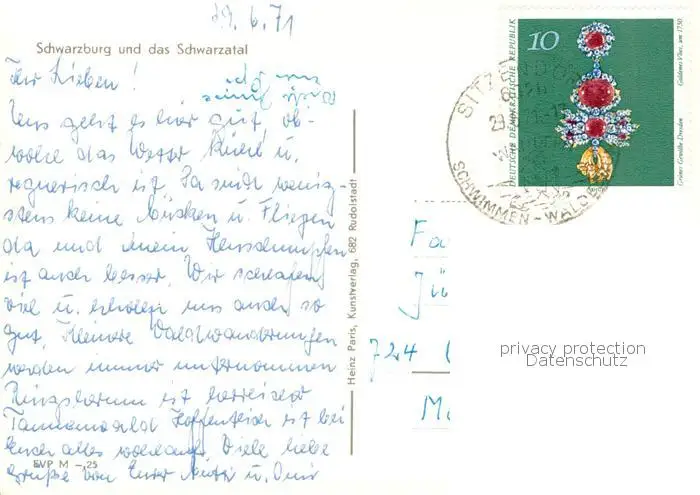 29.6.71
Schwarzburg und das Schwarzatal
Ihr Lieben!
Uns geht es hier gut, ob-
wohl das Wetter kühl u.
regnerisch ist. Da sind wenig-
stens keine Mücken u. Fliegen
da und mein Heuschnupfen
ist auch besser. Wir schlafen
viel u. erholen uns auch so
gut. Kleinere Waldwanderungen
werden immer unternommen
Ringsherum ist herrlicher
Tannenwald Hoffentlich ist bei
Euch alles wohlauf. Viele liebe
Grüße von Eurer Mutti u.
EVP M -,25
Heinz Paris, Kunstverlag, 682 Rudolstadt
10
DEUTSCHE DEMOKRATISCHE REPUBLIK
Goldenes Vlies, um 1750
Grünes Gewölbe Dresden
SCHWIMMEN - WALD
Fa
Jü
724
M
privacy protection
Datenschutz